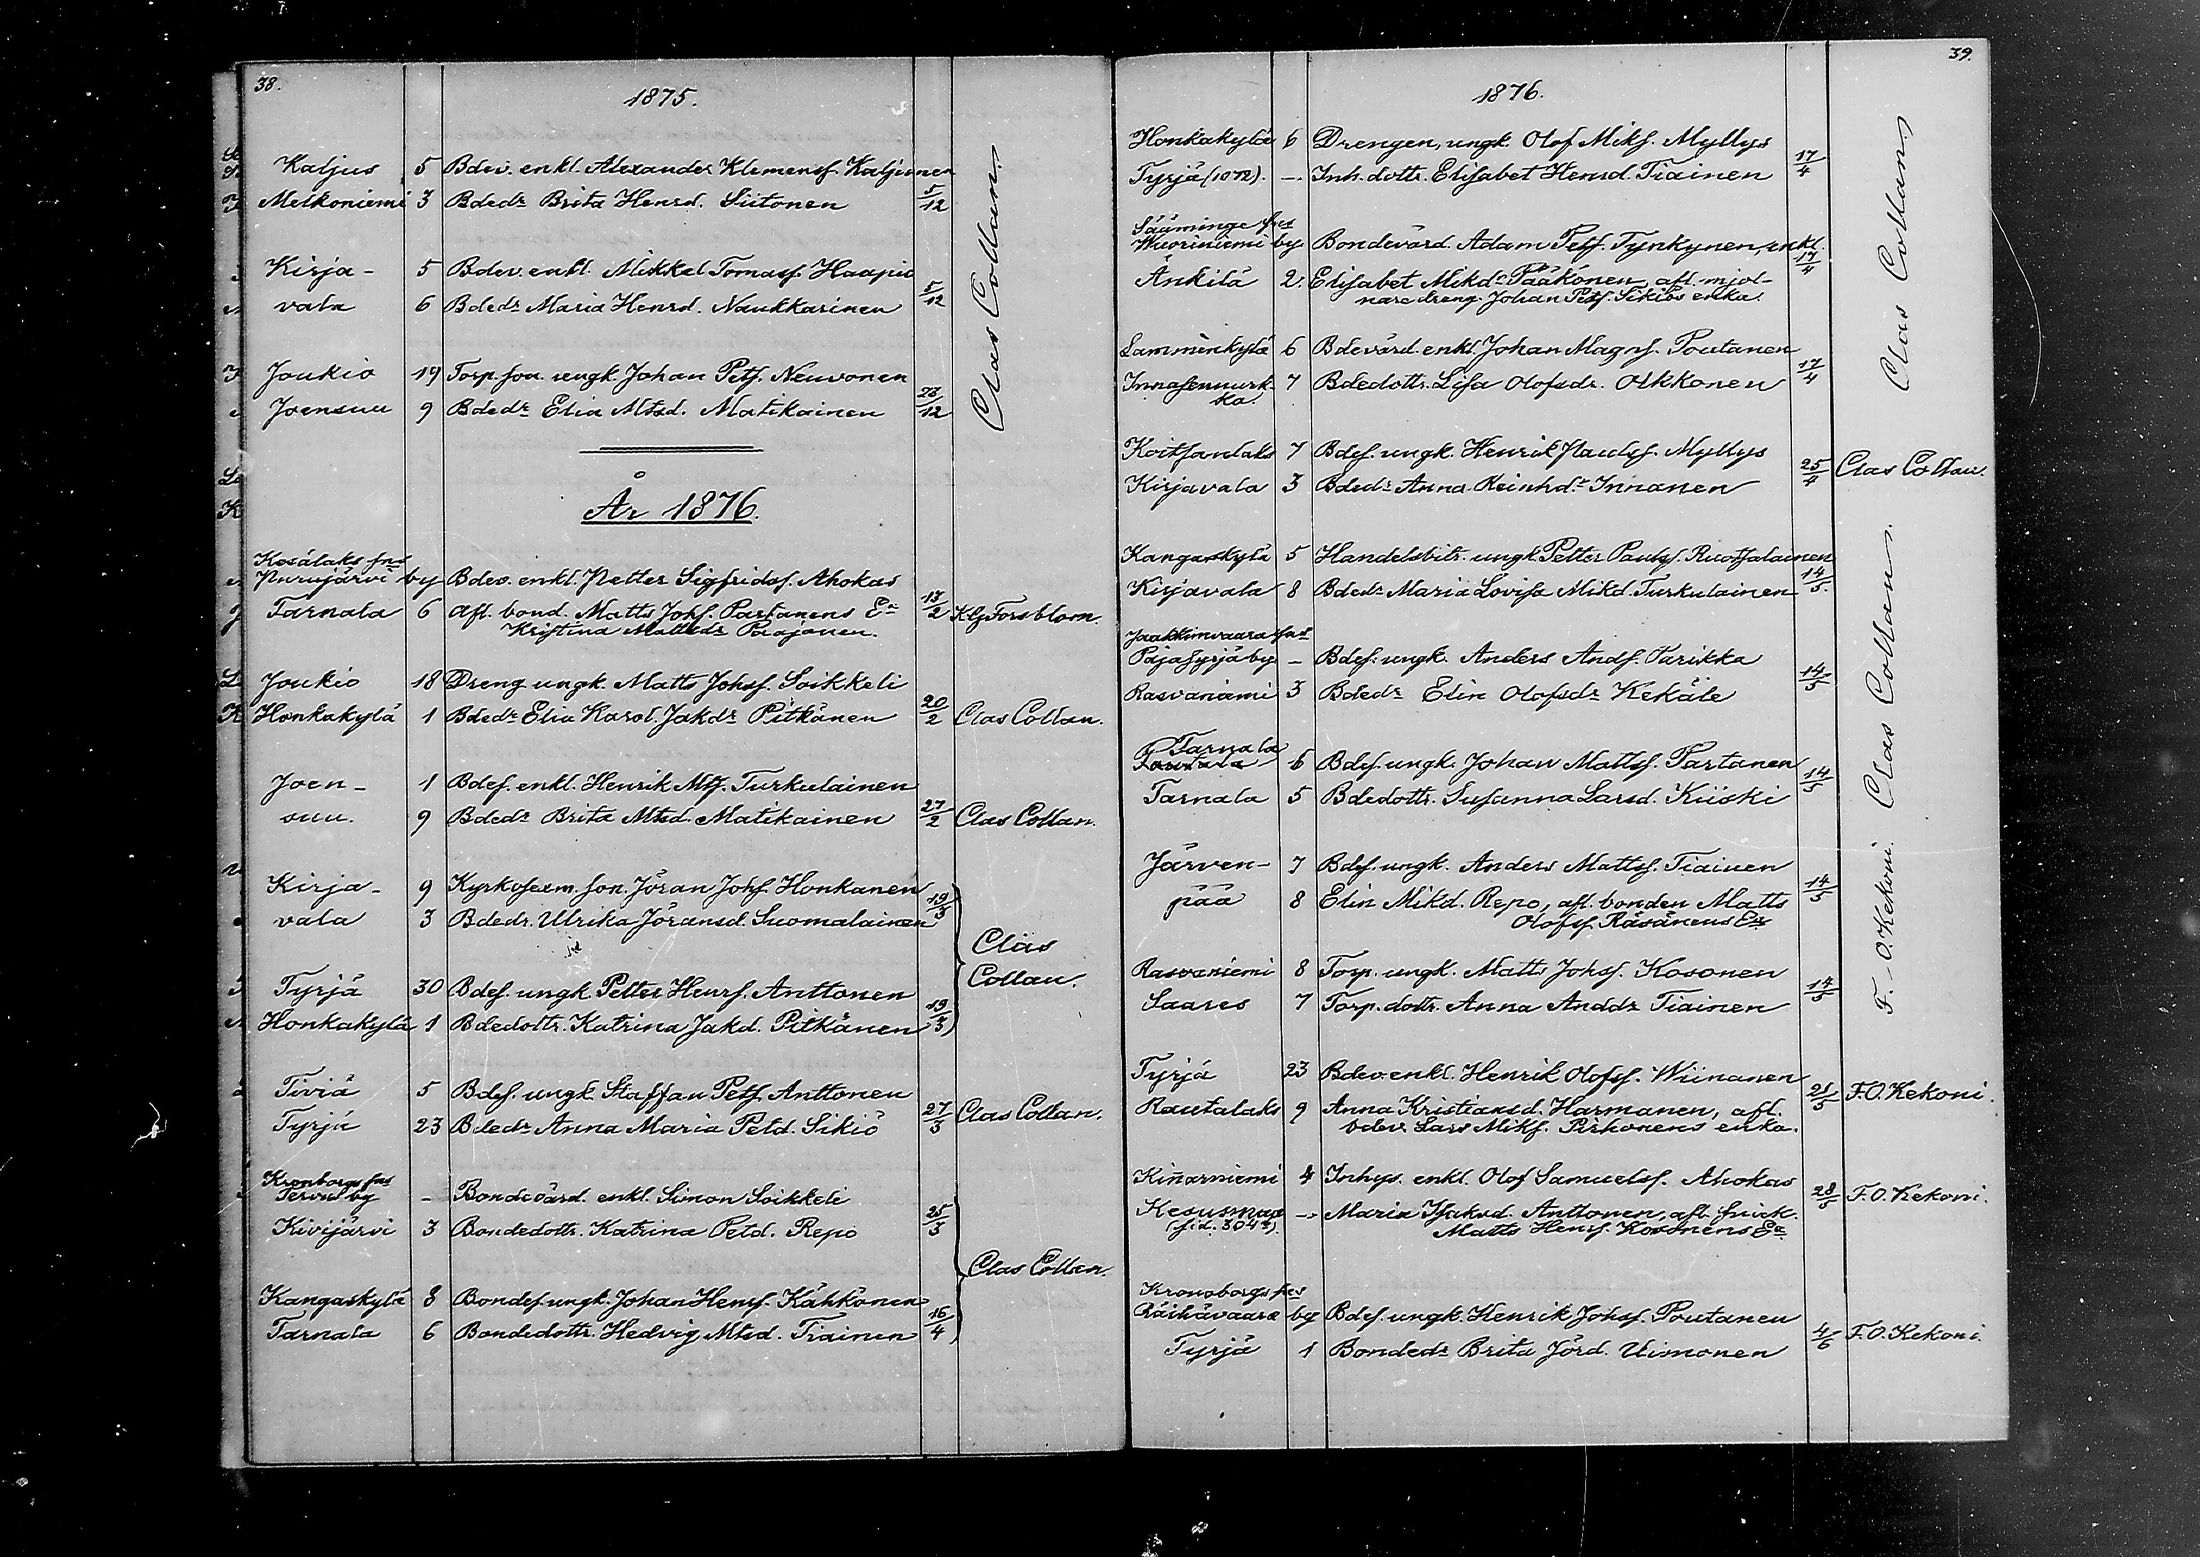 38.
1875.
Kaljus 5 Bdev. enkl. Alexander Klemensf. Kaljunen
Melkoniemi 3 Bdedr Brita Henrd. Siitonen 5/12
Kirja- 5 Bdev. enkl. Mikkel Tomasf. Haapio
vala 6 Bdedr Maria Henrd. Naukkarinen 5/12
Joukio 19 Torp. son. ungk. Johan Petf. Neuvonen
Joensuu 9 Bdedr Elia Mtsd. Matikainen 28/12
Clas Collan.
År 1876.
Kesälaks fns
Purujärvi by Bdev. enkl. Petter Sigfridsf. Ahokas
Tarnala 6 Afl. bond. Matts Johf. Partanens Ea 13/2 K. G. Forsblom.
Kristina Mattsdr Paajanen.
Joukio 18 Dreng ungk. Matts Johsf. Soikkeli
Honkakylä 1 Bdedr Elia Karol. Jakdr Pitkänen 20/2 Clas Collan.
Joen- 1 Bdef. enkl. Henrik Mtsf. Turkulainen
suu. 9 Bdedr Brita Mtsd. Matikainen 27/2 Clas Collan.
Kirja- 9 Kyrkosexm. son. Jöran Johf. Honkanen
vala 3 Bdedr. Ulrika Jöransd. Suomalainen 19/3
Clas
Collan.
Tyrjä 30 Bdef. ungk. Petter Henrf. Anttonen
Honkakylä 1 Bdedottr. Katrina Jakd. Pitkänen 19/3
Tiviä 5 Bdef. ungk. Staffan Petf. Anttonen
Tyrjä 23 Bdedr Anna Maria Petd. Sikiö 27/3 Clas Collan.
Kronborgs fns
Tervus by - Bondevärd. enkl. Simon Soikkeli
Kivijärvi 3 Bondedottr. Katrina Petd. Repo 25/3
Clas Collan.
Kangaskylä 8 Bondef. ungk. Johan Henrf. Kähkönen
Tarnala 6 Bondedottr. Hedvig Mtsd. Tiainen 16/4
39.
1876.
Honkakylä 6 Drengen, ungk. Olof Mikf. Myllys
Tyrjä (1072). - Inh. dottr. Elisabet Henrd. Tiainen 17/4
Sääminge fns
Wuoriniemi by Bondevärd. Adam Petf. Tynkynen, enkl.
Änkilä 2. Elisabet Mikdr Pääkönen, afl. mjöl- 17/4
naredreng. Johan Petf. Sikiös enka.
Lamminkylä 6 Bdevärd. enkl. Johan Magnf. Poutanen
Innasennurk- 7 Bdedottr. Lisa Olofsdr. Olkkonen 17/4
ka.
Clas Collan
Koitsanlaks 7 Bdef. ungk. Henrik Paulsf. Myllys
Kirjavala 3 Bdedr Anna Reinhdr Innanen 25/4 Clas Collan.
Kangaskylä 5 Handelsbitr. ungk. Petter Paulsf. Ruotsalainen
Kirjavala 8 Bdedr Maria Lovisa Mikd. Turkulainen 14/5.
Jaakkimvaara fns
Pajasyrjä by - Bdef. ungk. Anders Andf. Tarikka
Rasvaniemi 3 Bdedr Elin Olofsdr Kekäle 14/5
Clas Collan.
Tarnala
6 Bdef. ungk. Johan Mattsf. Partanen
Tarnala 5 Bdedottr. Susanna Larsd. Kiiski 14/5
Järven- 7 Bdef. ungk. Anders Mattsf. Tiainen
pää 8 Elin Mikd. Repo, afl. bonden Matts 14/5
Olofsf. Räsänens Ea
Rasvaniemi 8 Torp. ungk. Matts Johsf. Kosonen
Saares 7 Torp. dottr. Anna Anddr Tiainen 14/5
F. O. Kekoni.
Tyrjä 23 Bdev. enkl. Henrik Olofsf. Wiinanen
Rautalaks 9 Anna Kristiansd. Harmanen, afl. 21/5 F. O. Kekoni.
bdev. Lars Mikf. Pirhonens enka.
Kinarniemi 4 Inhys. enkl. Olof Samuelsf. Ahokas
Kesusmaa - Maria Isaksd. Anttonen, afl. snick. 28/5 F. O. Kekoni.
(sid. 304) Matts Henrf. Kosonens Ea
Kronoborgs fns
Räihävaara by Bdef. ungk. Henrik Johsf. Poutanen
Tyrjä 1 Bondedr Brita Jörd. Uimonen 4/6 F. O. Kekoni.